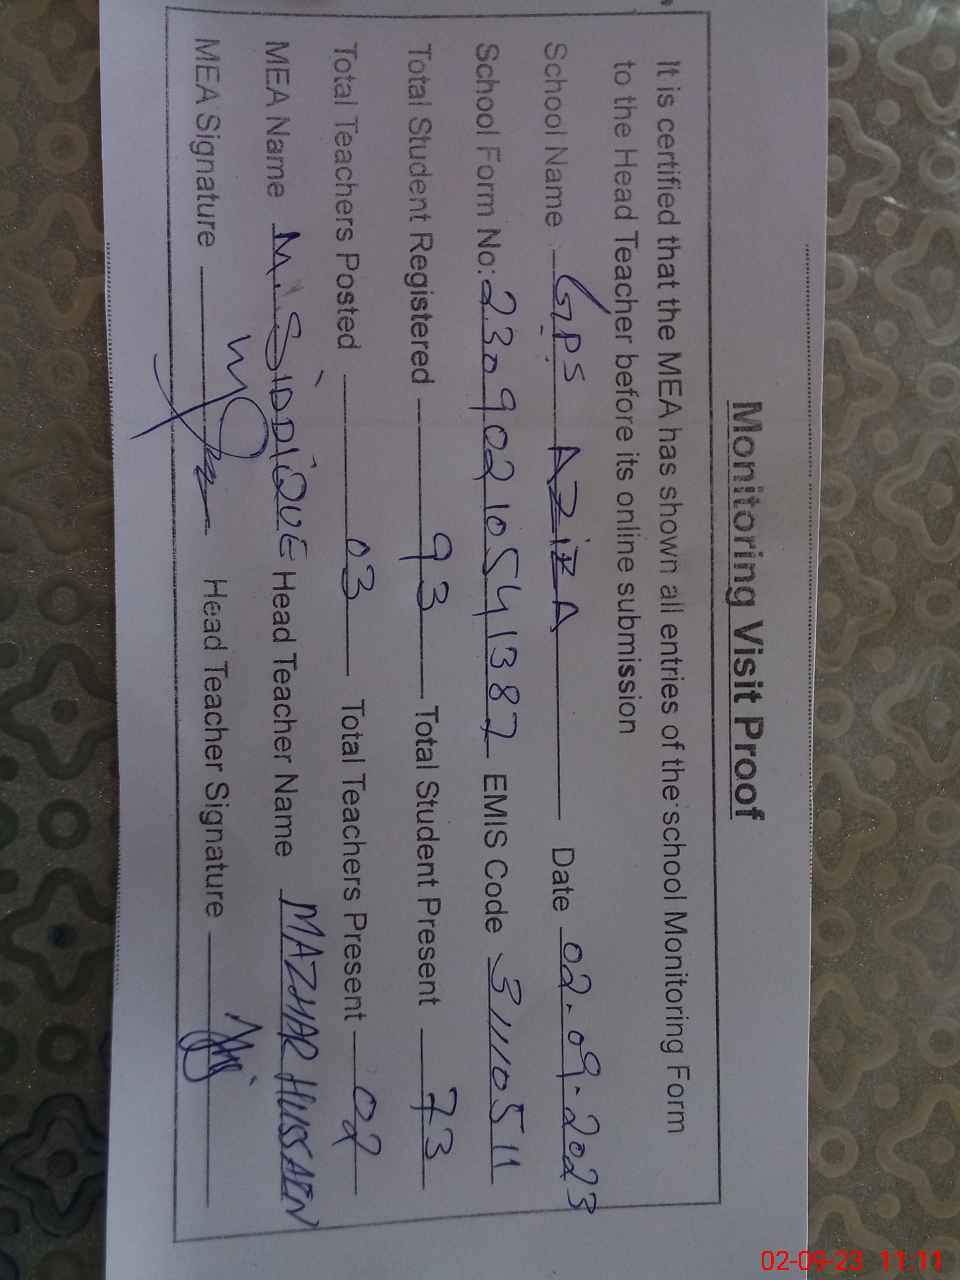 Monitoring Visit Proof
It is certified that the MEA has shown all entries of the school Monitoring Form
to the Head Teacher before its online submission
School Name GPS AZIZA Date 02-09-2023
School Form No: 23090210541387 EMIS Code 31110511
Total Student Registered 93 Total Student Present 73
Total Teachers Posted 03 Total Teachers Present 02
MEA Name M. SIDDIQUE Head Teacher Name MAZHAR HUSSAIN
MEA Signature Head Teacher Signature
02-09-23 11:11